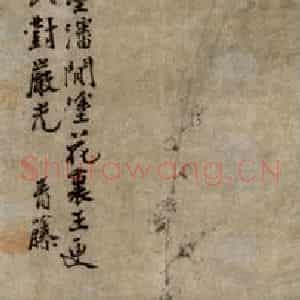 潘閬塗花裏王更
對嚴光 青藤
Shufawang.CN